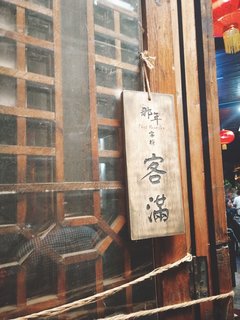 那年
客栈
客
滿